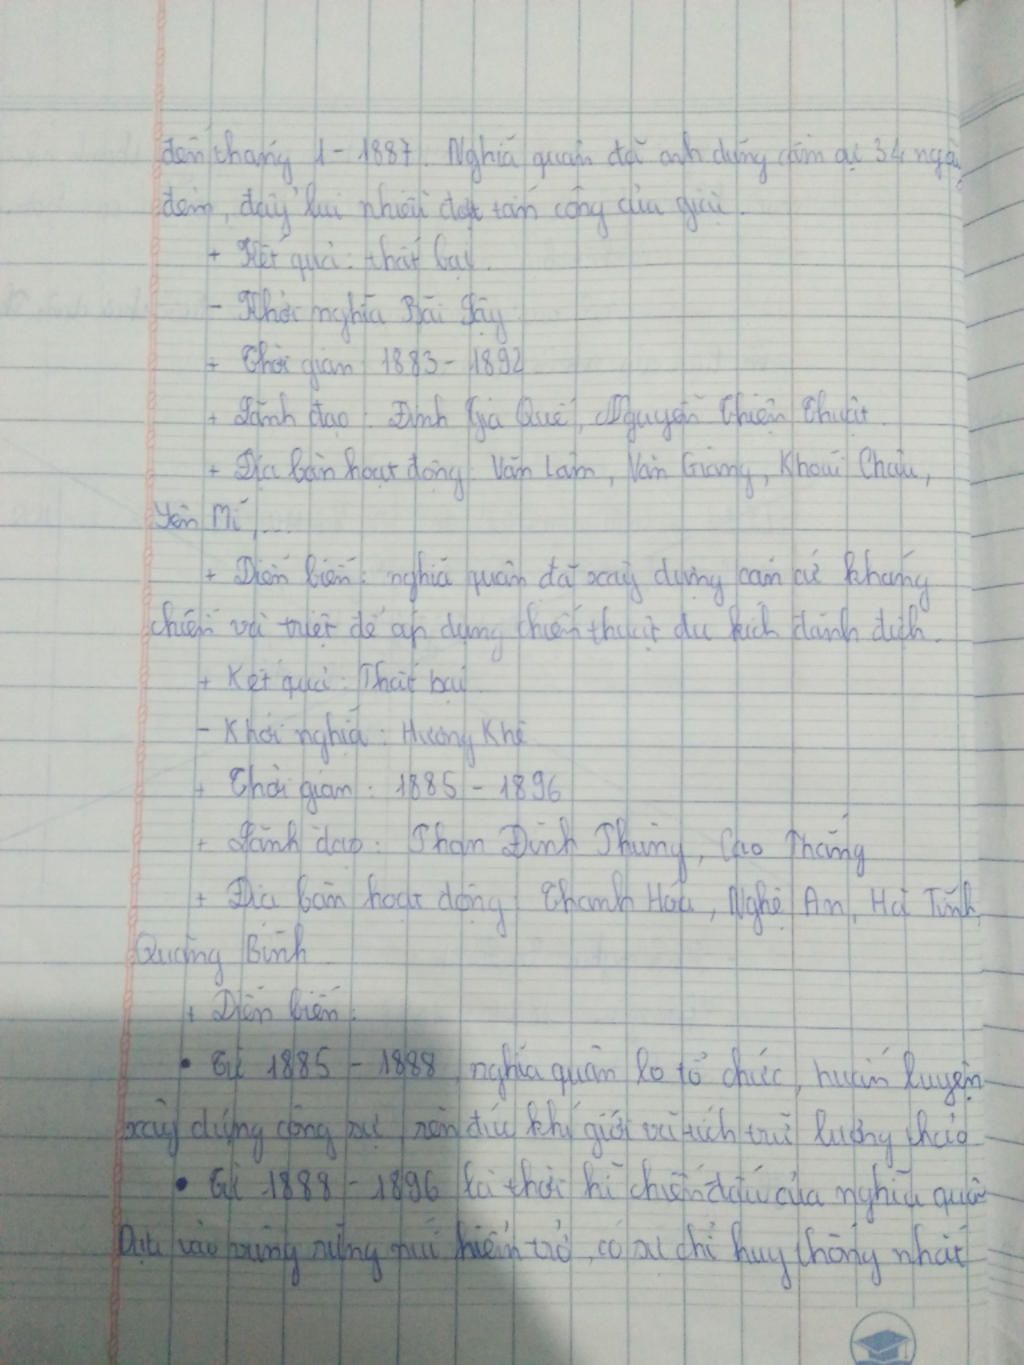 đến tháng 1 - 1887. Nghĩa quân đã anh dũng cầm cự 34 ngày
đêm, đẩy lui nhiều đợt tấn công của giặc.
+ Kết quả: thất bại.
- Khởi nghĩa Bãi Sậy
+ Thời gian 1883 - 1892
+ Lãnh đạo: Đinh Gia Quế, Nguyễn Thiện Thuật.
+ Địa bàn hoạt động: Văn Lâm, Văn Giang, Khoái Châu,
Yên Mĩ,...
+ Diễn biến: nghĩa quân đã xây dựng căn cứ kháng
chiến và triệt để áp dụng chiến thuật du kích đánh địch.
+ Kết quả: Thất bại
- Khởi nghĩa: Hương Khê
+ Thời gian: 1885 - 1896
+ Lãnh đạo: Phan Đình Phùng, Cao Thắng
+ Địa bàn hoạt động Thanh Hóa, Nghệ An, Hà Tĩnh,
Quảng Bình
+ Diễn biến:
• Từ 1885 - 1888, nghĩa quân lo tổ chức, huấn luyện
xây dựng công sự, rèn đúc khí giới và tích trữ lương thảo
• Từ 1888 - 1896 là thời kì chiến đấu của nghĩa quân
Dựa vào vùng rừng núi hiểm trở, có sự chỉ huy thống nhất